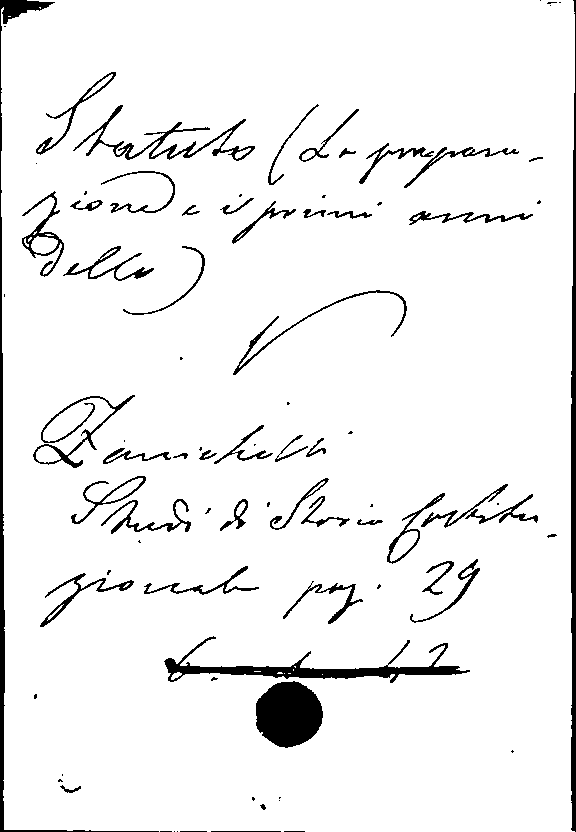 Statuto (La prepara-
zione e i primi anni
dello)
V
Zanichelli
Studi di Storia Costitu-
zionale pag. 29